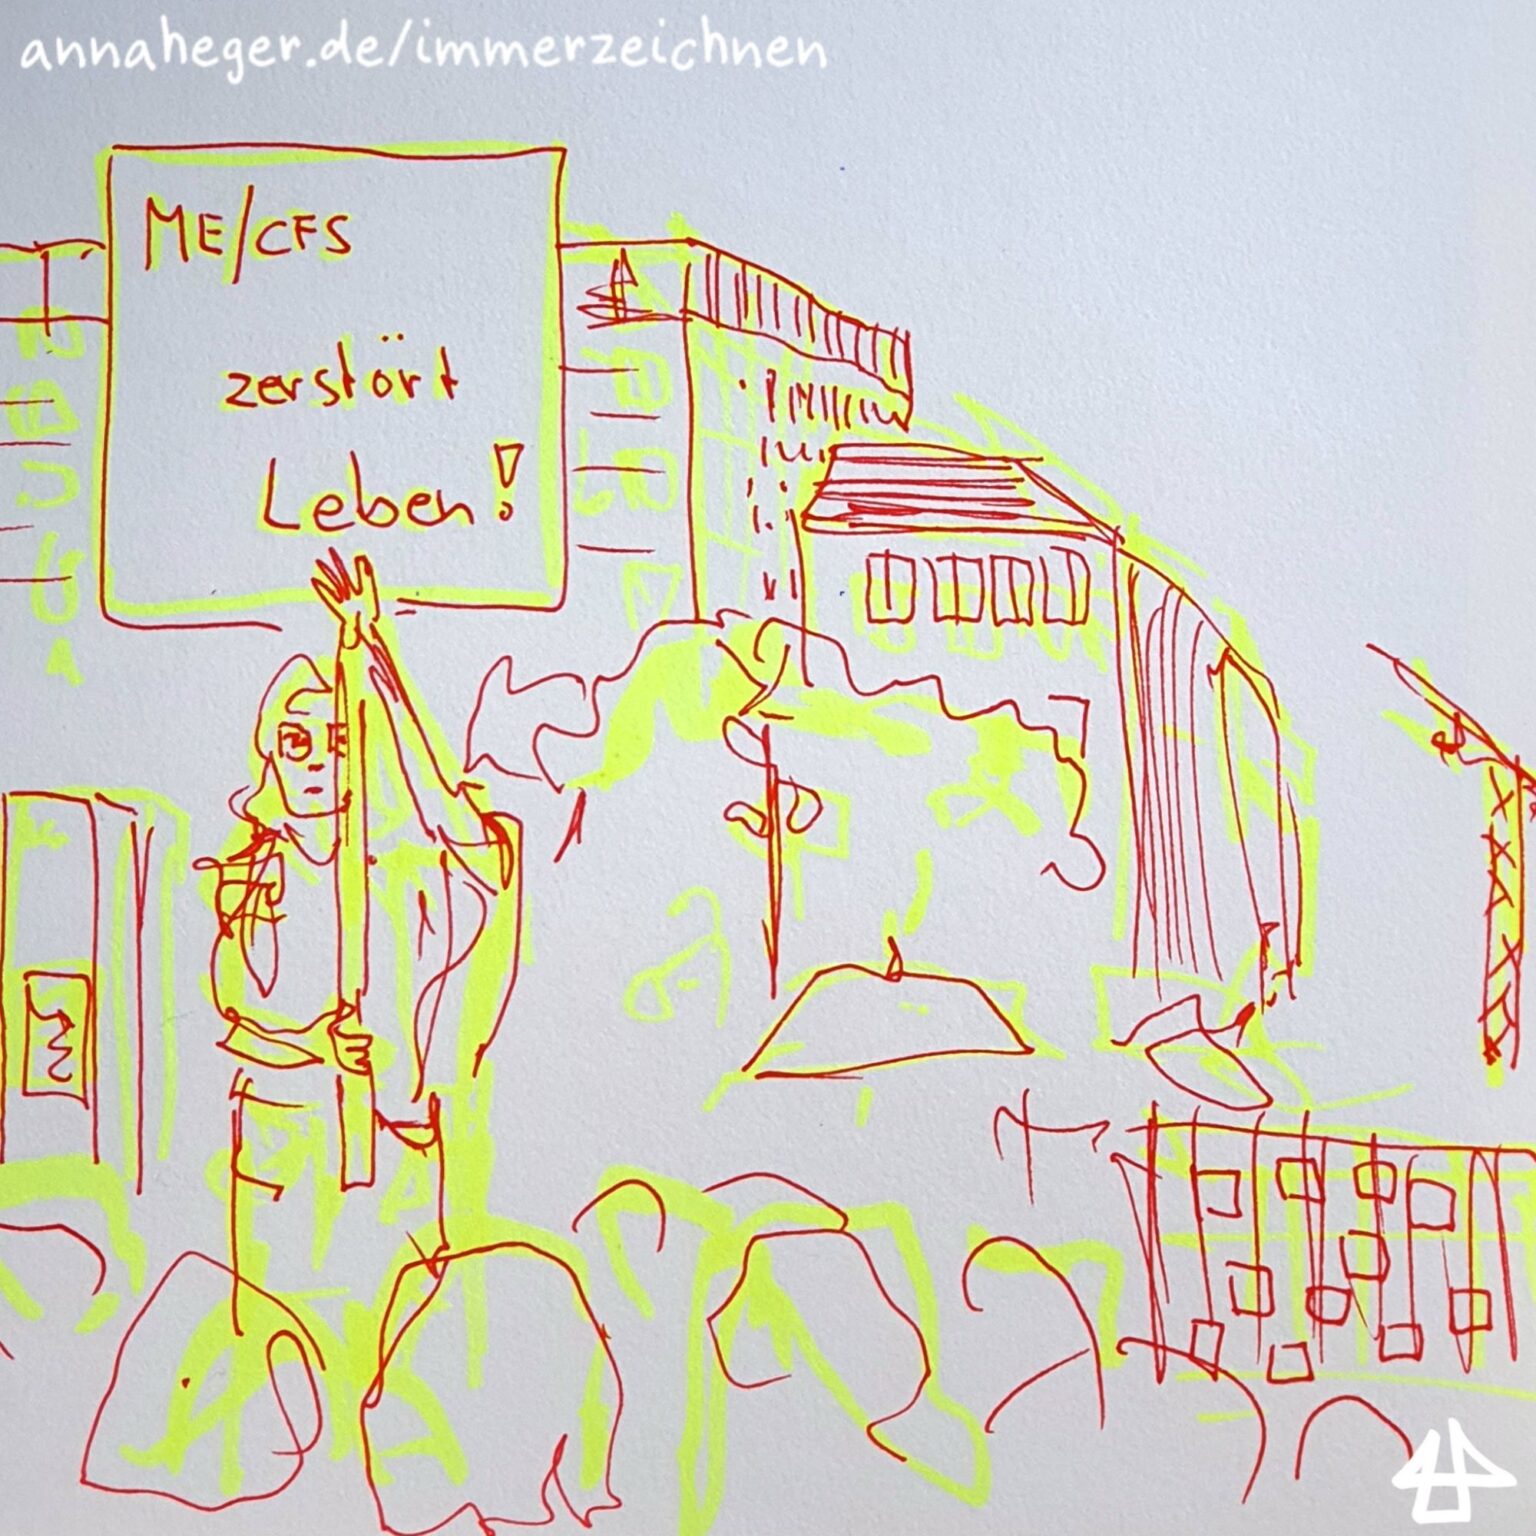 annaheger.de/immerzeichnen
ME/CFS
zerstört
Leben!